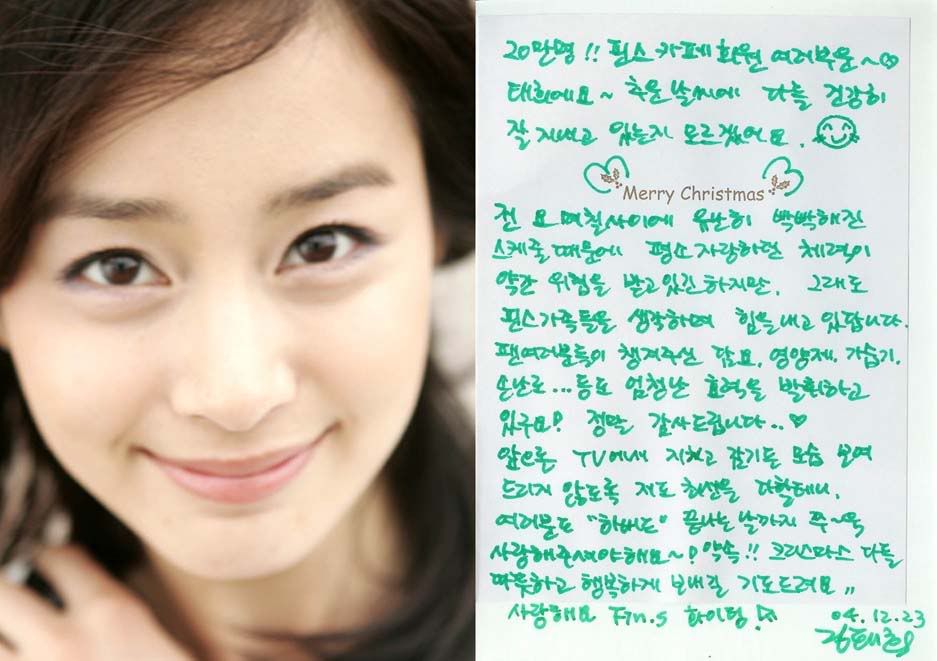 20만명!! 핀스카페 회원 여러분~♡
태희에요~ 추운 날씨에 다들 건강히
잘 지내고 있는지 모르겠어요.
Merry Christmas
전 요 며칠사이에 유난히 빡빡해진
스케줄 때문에 평소 자랑하던 체력이
약간 위협을 받고있긴하지만, 그래도
핀스가족들을 생각하며 힘을내고 있답니다.
팬여러분들이 챙겨주신 담요, 영양제, 가습기,
손난로...등도 엄청난 효력을 발휘하고
있구요! 정말 감사드립니다..♡
앞으론 TV에서 지치고 감기든 모습 보여
드리지 않도록 저도 최선을 다할테니,
여러분도 "하버드" 끝나는 날까지 쭈~욱
사랑해주셔야해요~! 약속!! 크리스마스 다들
따뜻하고 행복하게 보내길 기도드려요,,
사랑해요 Fin.s 화이팅!
04.12.23
김태희